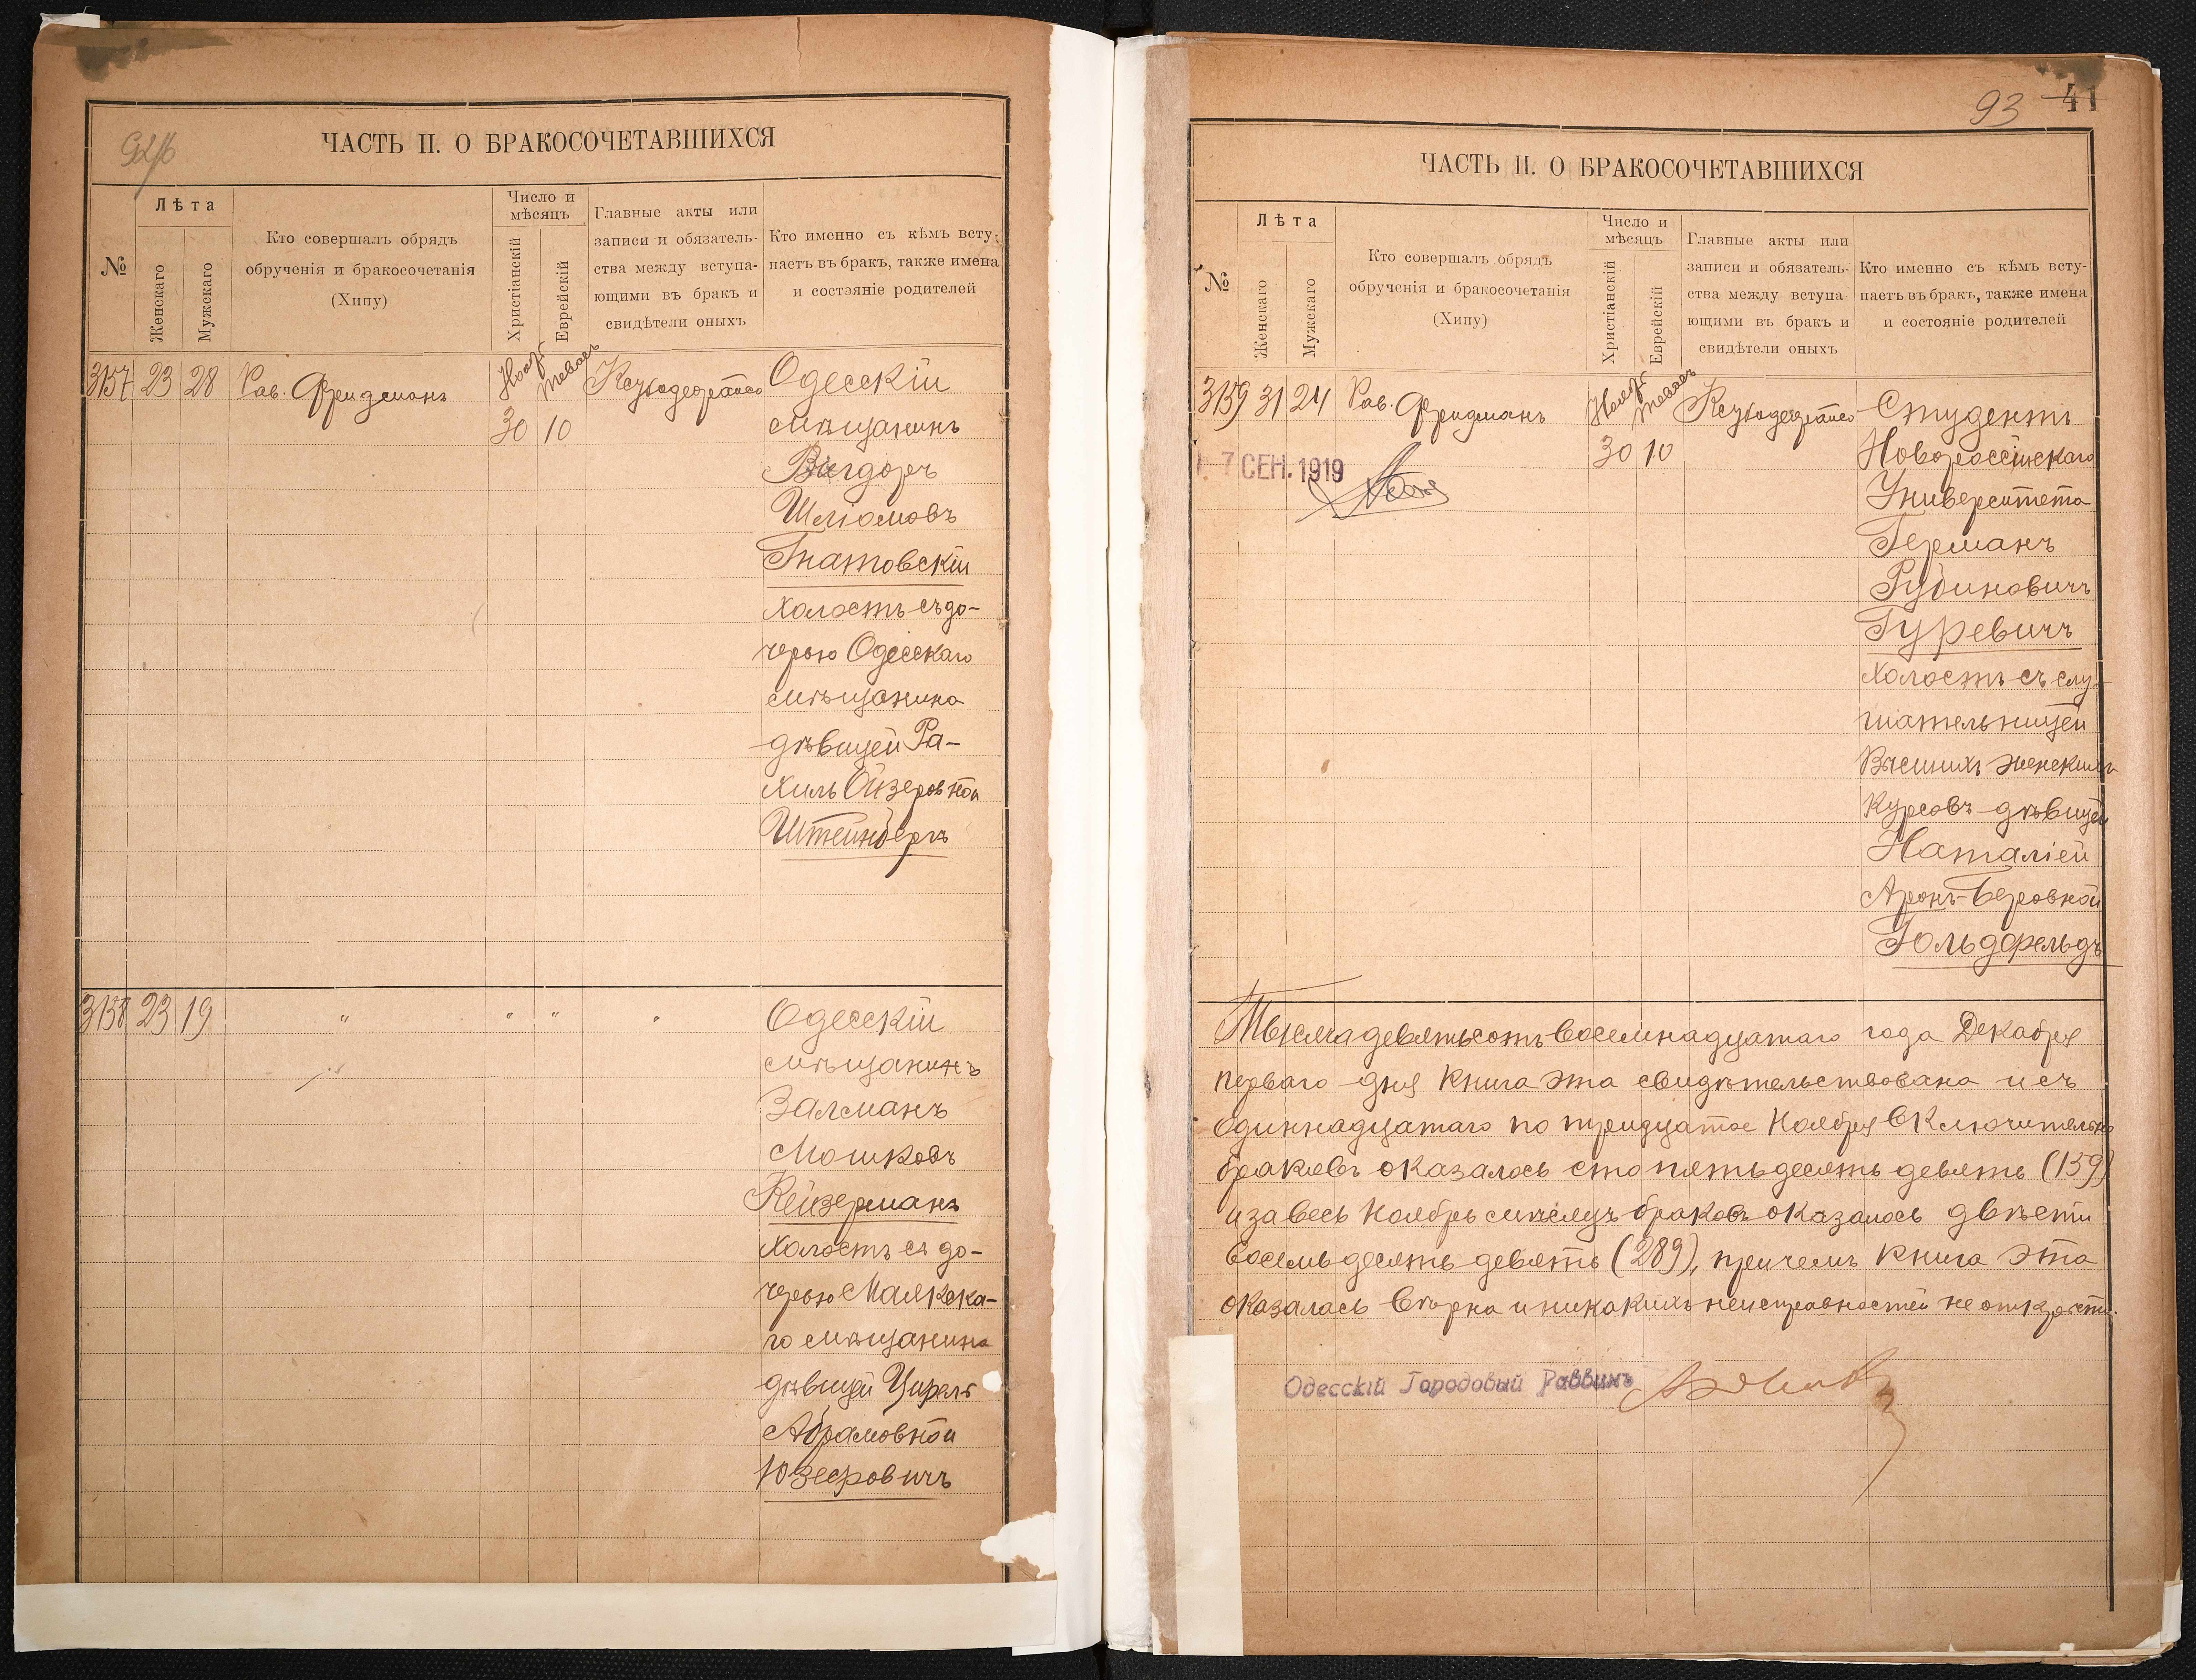 ЧАСТЬ II. О БРАКОСОЧЕТАВШИХСЯ
№
Лѣта
Женскаго
Мужскаго
Кто совершалъ обрядъ
обрученія и бракосочетанія
(Хипу)
Число и
мѣсяцъ
Христіанскій
Еврейскій
Главные акты или
записи и обязатель-
ства между вступа-
ющими въ бракъ и
свидѣтели оныхъ
Кто именно съ кѣмъ всту-
паетъ въ бракъ, также имена
и состояніе родителей
3157 23 28 Рав. Фридманъ
30 10
Одесскій
мѣщанинъ
Вигдоръ
Шліомовъ
Гнатовскій
холостъ съ до-
черью Одесскаго
мѣщанина
дѣвицей Ра-
хиль Ойзеровной
Штейнбергъ
3158 23 19 " " " "
Одесскій
мѣщанинъ
Залманъ
Мошковъ
Кейзерманъ
холостъ съ до-
черью Маякска-
го мѣщанина
дѣвицей Цирель
Абрамовной
Юзефовичъ
93 41
ЧАСТЬ II. О БРАКОСОЧЕТАВШИХСЯ
№
Лѣта
Женскаго
Мужскаго
Кто совершалъ обрядъ
обрученія и бракосочетанія
(Хипу)
Число и
мѣсяцъ
Христіанскій
Еврейскій
Главные акты или
записи и обязатель-
ства между вступа-
ющими въ бракъ и
свидѣтели оныхъ
Кто именно съ кѣмъ всту-
паетъ въ бракъ, также имена
и состояніе родителей
3159 31 24 Рав. Фридманъ
30 10
7 СЕН. 1919
Студентъ
Новороссійскаго
Университета
Германъ
Рубиновичъ
Гуревичъ
холостъ съ слу-
шательницей
Высшихъ женскихъ
Курсовъ дѣвицей
Наталіей
Аронъ-Беровной
Гольдфельдъ
Тысяча девятьсотъ восемнадцатаго года Декабря
перваго дня книга эта свидѣтельствована и съ
одиннадцатаго по тридцатое Ноября включительно
браковъ оказалось сто пятьдесятъ девять (159)
и за весь Ноябрь мѣсяцъ браковъ оказалось двѣсти
восемьдесятъ девять (289), причемъ книга эта
оказалась вѣрна и никакихъ неисправностей не открыто.
Одесскій Городовый Раввинъ